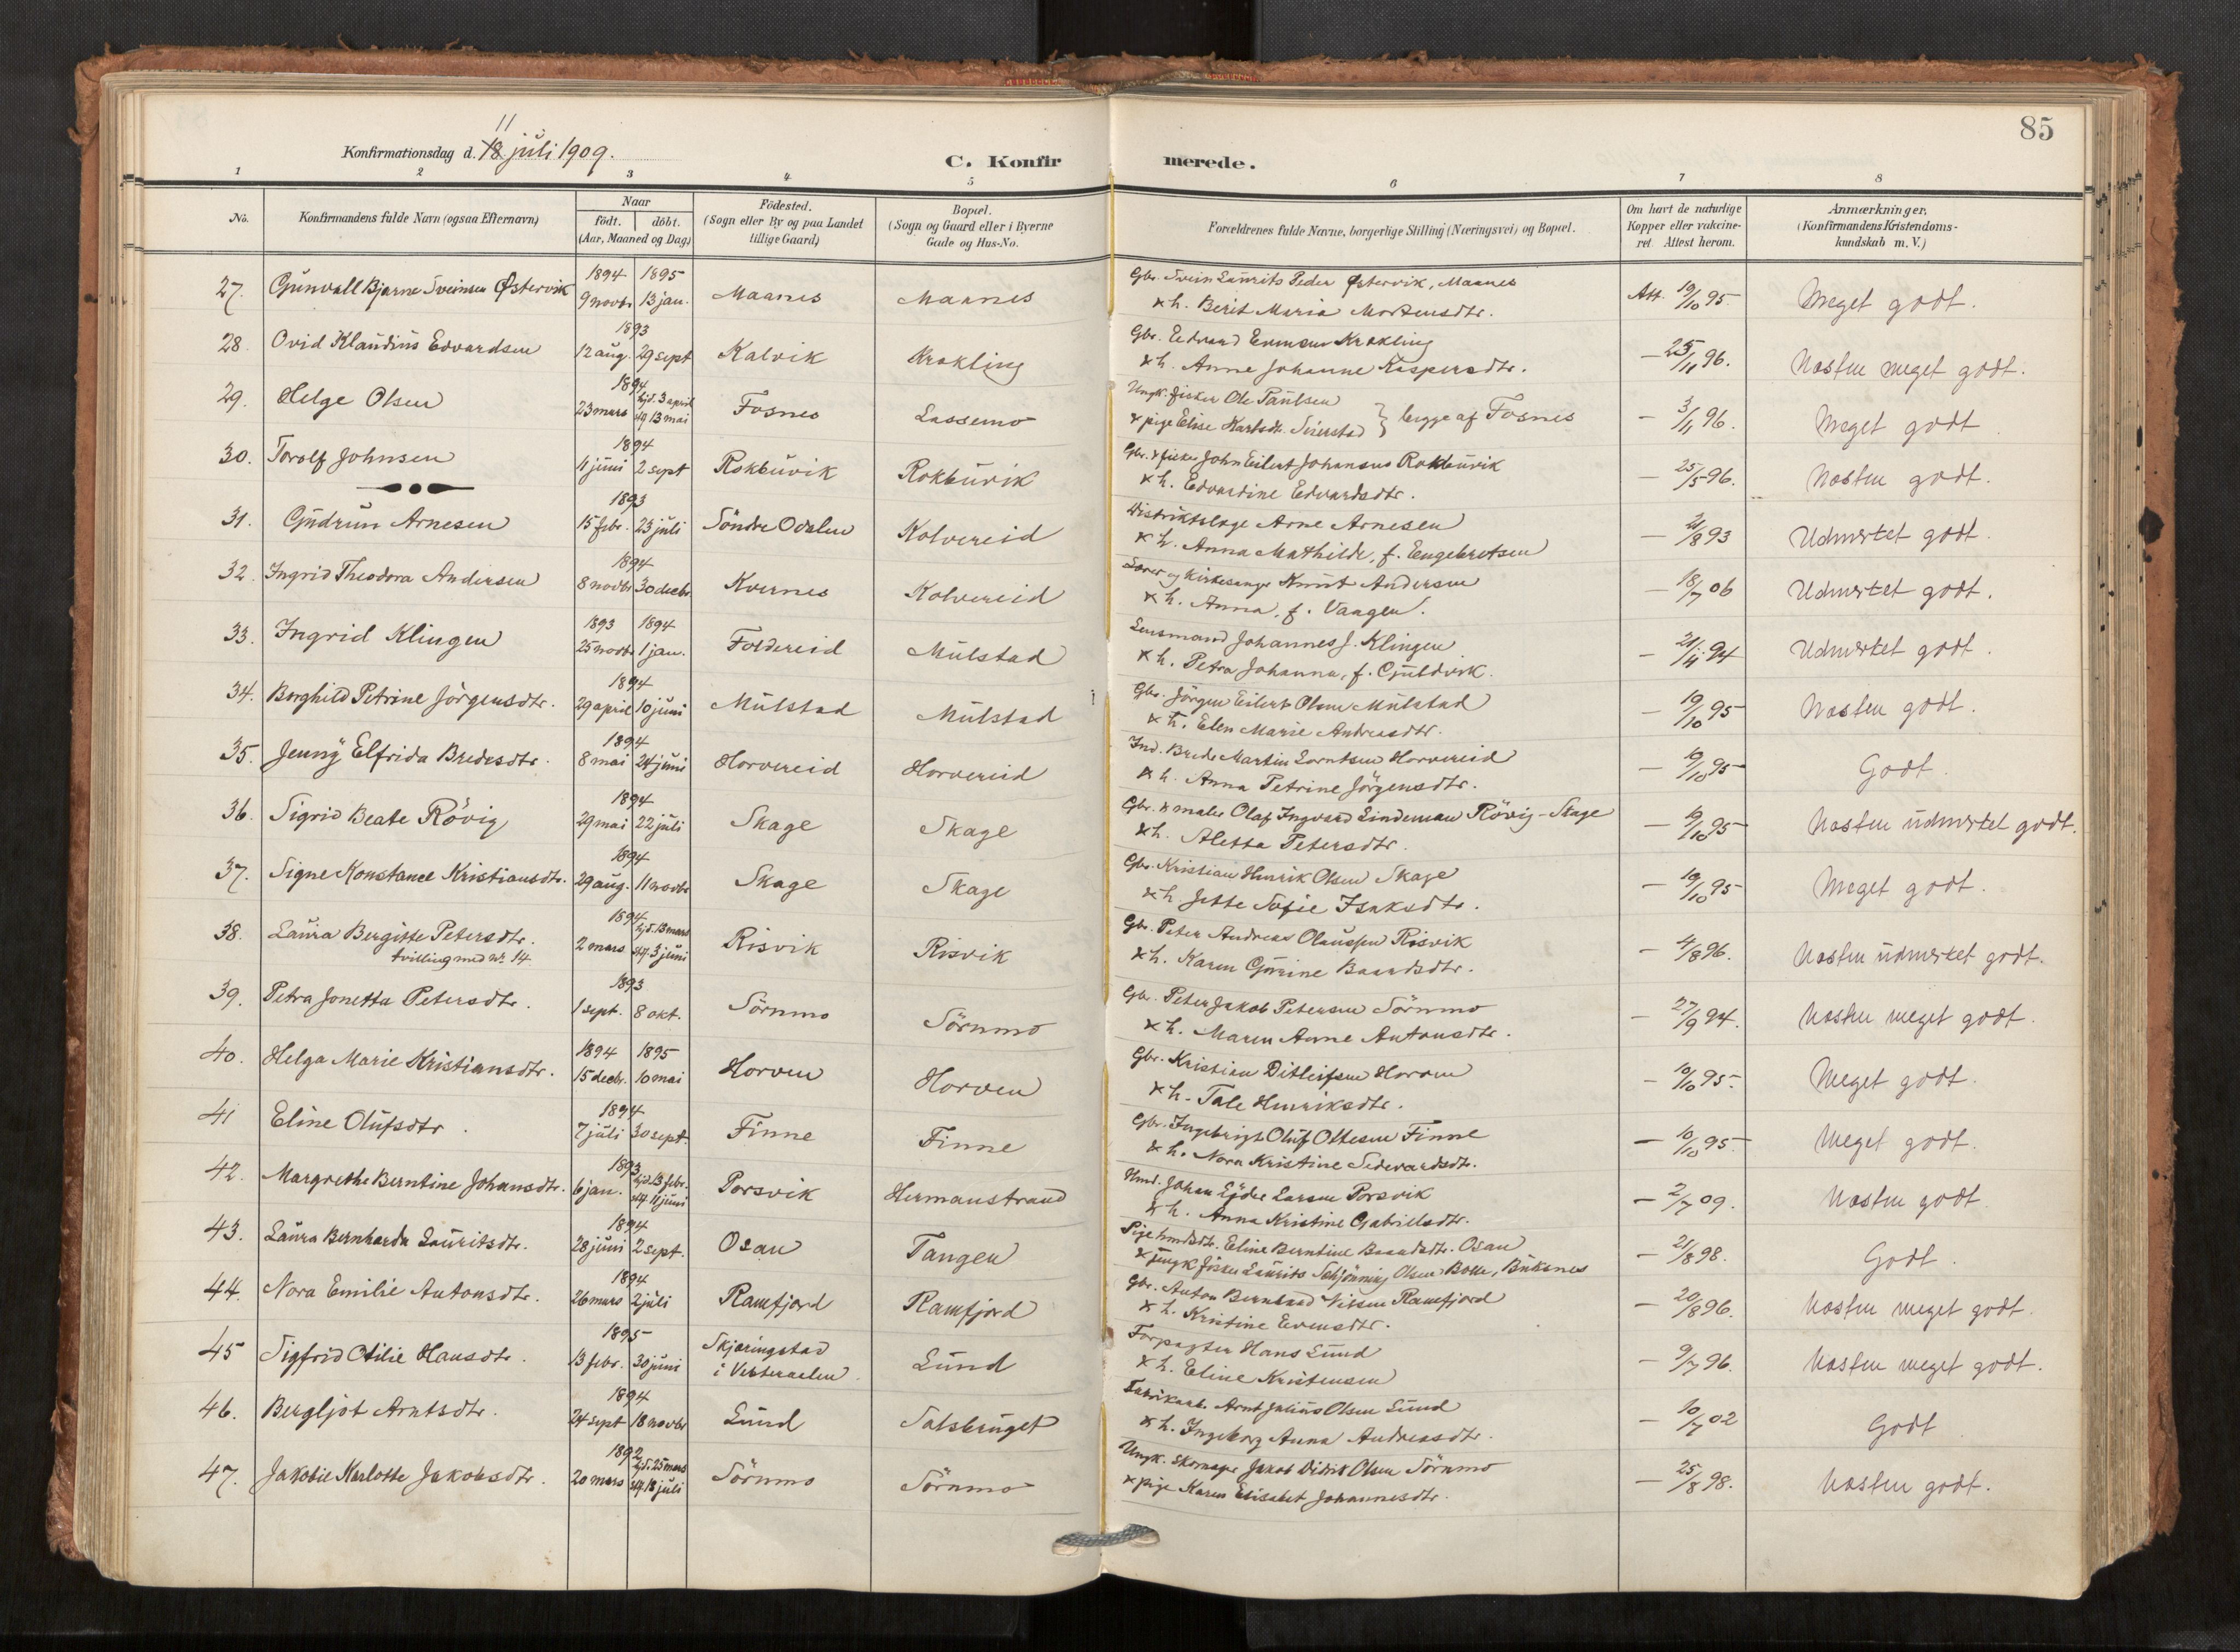 85
11
Konfirmationsdag d. 18. juli 1909.
C. Konfirmerede.
1 2 3 4 5 6 7 8
No.
Konfirmandens fulde Navn (ogsaa Efternavn)
Naar
födt. döbt.
(Aar, Maaned og Dag)
Födested.
(Sogn eller By og paa Landet
tillige Gaard)
Bopæl.
(Sogn og Gaard eller i Byerne
Gade og Hus-No.
Forældrenes fulde Navne, borgerlige Stilling (Næringsvei) og Bopæl.
Om havt de naturlige
Kopper eller vakcine-
ret. Attest herom.
Anmærkninger.
(Konfirmandens Kristendoms-
kundskab m. V.)
1894 1895
27. Gunvall Bjarne Sveinsen Østervik 9 novbr 13 jan. Maanes Maanes Gbr. Svein Laurits Peder Østervik, Maanes Att. 19/10 95. Meget godt.
& h. Berit Maria Mortensdtr.
1893
28. Ovid Klaudius Edvardsen 12 aug. 29 sept Kalvik Krakling Gbr. Edvard Krakling — 25/11 96. Næsten meget godt.
& h. Anna Johanne Kaspersdtr.
1894
29. Helge Olsen 23 mars hjd. 3 april Fosnes Lassemo Ungk. fisker Ole Paulsen — 3/11 96. Meget godt
stf. 13 mai & pige Elise Karlsdt. Seierstad } begge af Fosnes
1894
30. Torolf Johnsen 11 juni 2 sept Rokbuvik Rokbuvik Gbr. & fisker John Eilert Johansen Rokbuvik — 25/5 96. Næsten godt.
& h. Edvardine Edvardsdtr.
1893
31. Gudrun Arnesen 15 febr. 23 juli Söndre Odalen Kolvereid Distriktslæge Arne Arnesen — 21/8 93 Udmerket godt.
& h. Anna Mathilde, f. Engebretsen
1894
32. Ingrid Theodora Andersen 8 novbr 30 decbr Kvernes Kolvereid Lærer og kirkesanger Knut Andersen — 18/7 06 Udmerket godt.
& h. Anna, f. Vaagen.
1893 1894
33. Ingrid Klingen 25 novbr 1 jan. Foldereid Mulstad Lensmand Johannes J. Klingen — 21/11 94 Udmerket godt.
& h. Petra Johanna, f. Gjuldvik.
1894
34. Borghild Petrine Jörgensdtr. 29 april 10 juni Mulstad Mulstad Gbr. Jörgen Eilert Olsen Mulstad — 19/10 95 Næsten godt.
& h. Elen Marie Andreasdtr.
1894
35. Jenny Elfrida Bredesdtr. 8 mai 24 juni Horvereid Horvereid Ind. Brede Martin Lorntsen Horvereid — 19/10 95 Godt.
& h. Anna Petrine Jörgensdtr.
1894
36. Sigrid Beate Rövig 29 mai 22 juli Skage Skage Gbr. & maler Olaf Ingvard Lindeman Rövig-Skage — 19/10 95 Næsten udmerket godt.
& h. Aletta Petersdtr.
1894
37. Signe Konstance Kristiansdtr. 29 aug. 11 novbr Skage Skage Gbr. Kristian Henrik Olsen Skage — 19/10 95 Meget godt.
& h Jette Sofie Isaksdtr.
1894
38. Laura Bergitte Petersdtr. 2 mars hjd. 13 mars Risvik Risvik Gbr. Peter Andreas Olaussen Risvik — 4/8 96. Næsten udmerket godt.
tvilling med Nr. 14 stf. 3 juni & h. Karen Gurine Baardsdtr.
1893
39. Petra Jonetta Petersdtr. 1 sept. 8 okt. Sörnmo Sörnmo Gbr. Peter Jakob Petersen Sörnmo — 27/9 94. Næsten meget godt.
& h. Maren Anne Antonsdtr.
1894 1895
40. Helga Marie Kristiansdtr. 15 decbr. 10 mai Horven Horven Gbr. Kristian Ditleifsen Horven — 10/10 95. Meget godt.
& h. Tale Henriksdtr.
1894
41 Eline Olufsdtr. 7 juli 30 sept. Finne Finne Gbr. Ingebrigt Oluf Ottesen Finne — 10/10 95 Meget godt.
& h. Nora Kristine Sedevardsdtr.
1893
42. Margrethe Berntine Johansdtr. 6 jan. hjd. 13 febr. Porsvik Hermanstrand Hmd. Johan Larsen Porsvik — 2/7 09. Næsten godt
stf. 11 juni & h. Anna Kristine Gabrielsdtr.
1894
43. Laura Bernharda Lauritsdtr. 28 juni 2 sept. Osan Tangen Pige hmdsdtr. Eline Berntine Baardsdtr. Osan — 21/8 98. Godt.
& ungk fisker Laurits Schjönning Olsen Bolle, Buksnes
1894
44. Nora Emilie Antonsdtr. 26 mars 2 juli Ramfjord Ramfjord Gbr. Anton Bernhard Nilsen Ramfjord — 20/8 96. Næsten meget godt.
& h. Kristine Evensdtr.
1895
45 Sigfrid Otilie Hansdtr. 13 febr. 30 juni Skjæringstad Lund Forpagter Hans Lund — 9/7 96. Næsten meget godt.
i Vesteraalen & h. Eline Kristensen
1894
46. Bergljot Arntsdtr. 24 sept 18 novbr Lund Salsbruget Fabrikarb. Arnt Julius Olsen Lund — 10/7 02 Godt
& h. Ingeborg Anna Andreasdtr.
1892
47. Jakobie Karlotte Jakobsdtr. 20 mars hjd. 25 mars Sörnmo Sörnmo Ungk. skomager Jakob Didrik Olsen Sörnmo — 25/8 98. Næsten godt.
stf. 18 juli & pige Karen Elisabet Johannesdtr.